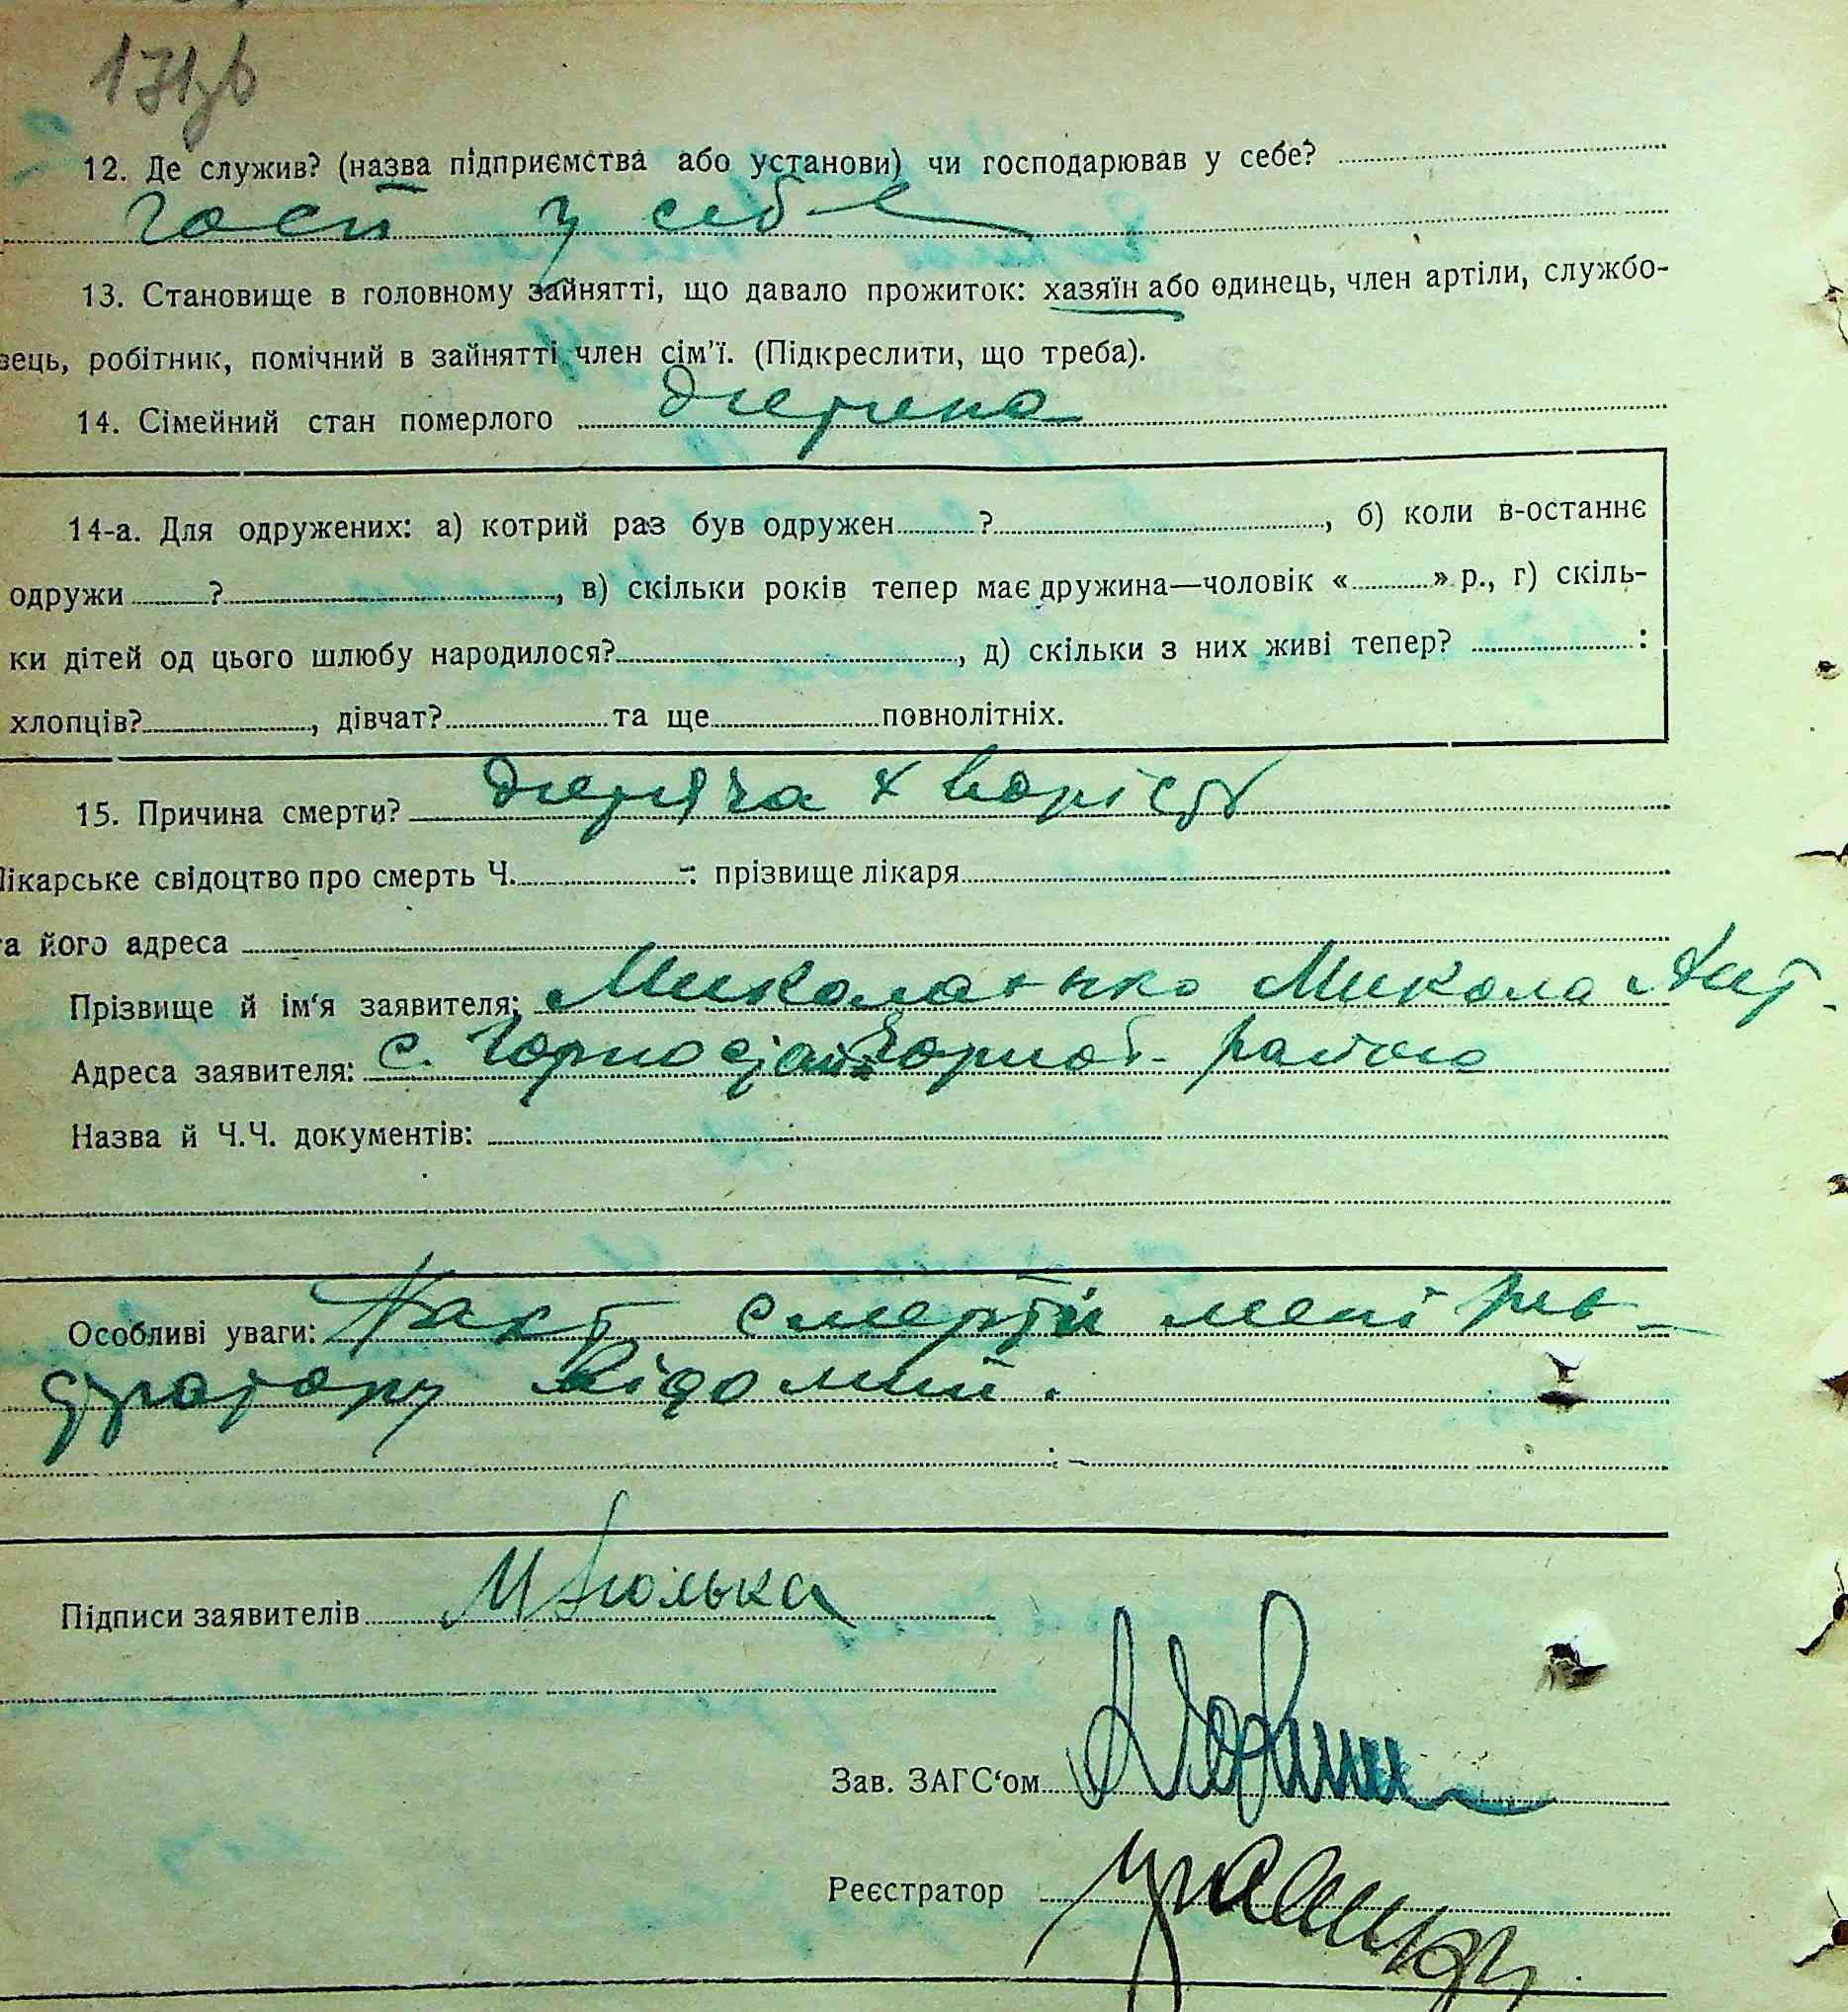 12. Де служив? (назва підприємства або установи) чи господарював у себе?
Госп у себе
13. Становище в головному зайнятті, що давало прожиток: хазяїн або одинець, член артіли, службо-
вець, робітник, помічний в зайнятті член сім'ї. (Підкреслити, що треба).
14. Сімейний стан померлого дитина
14-а. Для одружених: а) котрий раз був одружен ? , б) коли в-останнє
одружи ? , в) скільки років тепер має дружина—чоловік « » р., г) скіль-
ки дітей од цього шлюбу народилося? , д) скільки з них живі тепер? :
хлопців? , дівчат? та ще повнолітніх.
15. Причина смерти? дитяча хворість
Лікарське свідоцтво про смерть Ч. : прізвище лікаря
та його адреса
Прізвище й ім'я заявителя: Микола Ант.
Адреса заявителя: с. району
Назва й Ч.Ч. документів:
Особливі уваги: Факт смерти мені реє-
стратору відомий.
Підписи заявителів
Зав. ЗАГС'ом
Реєстратор